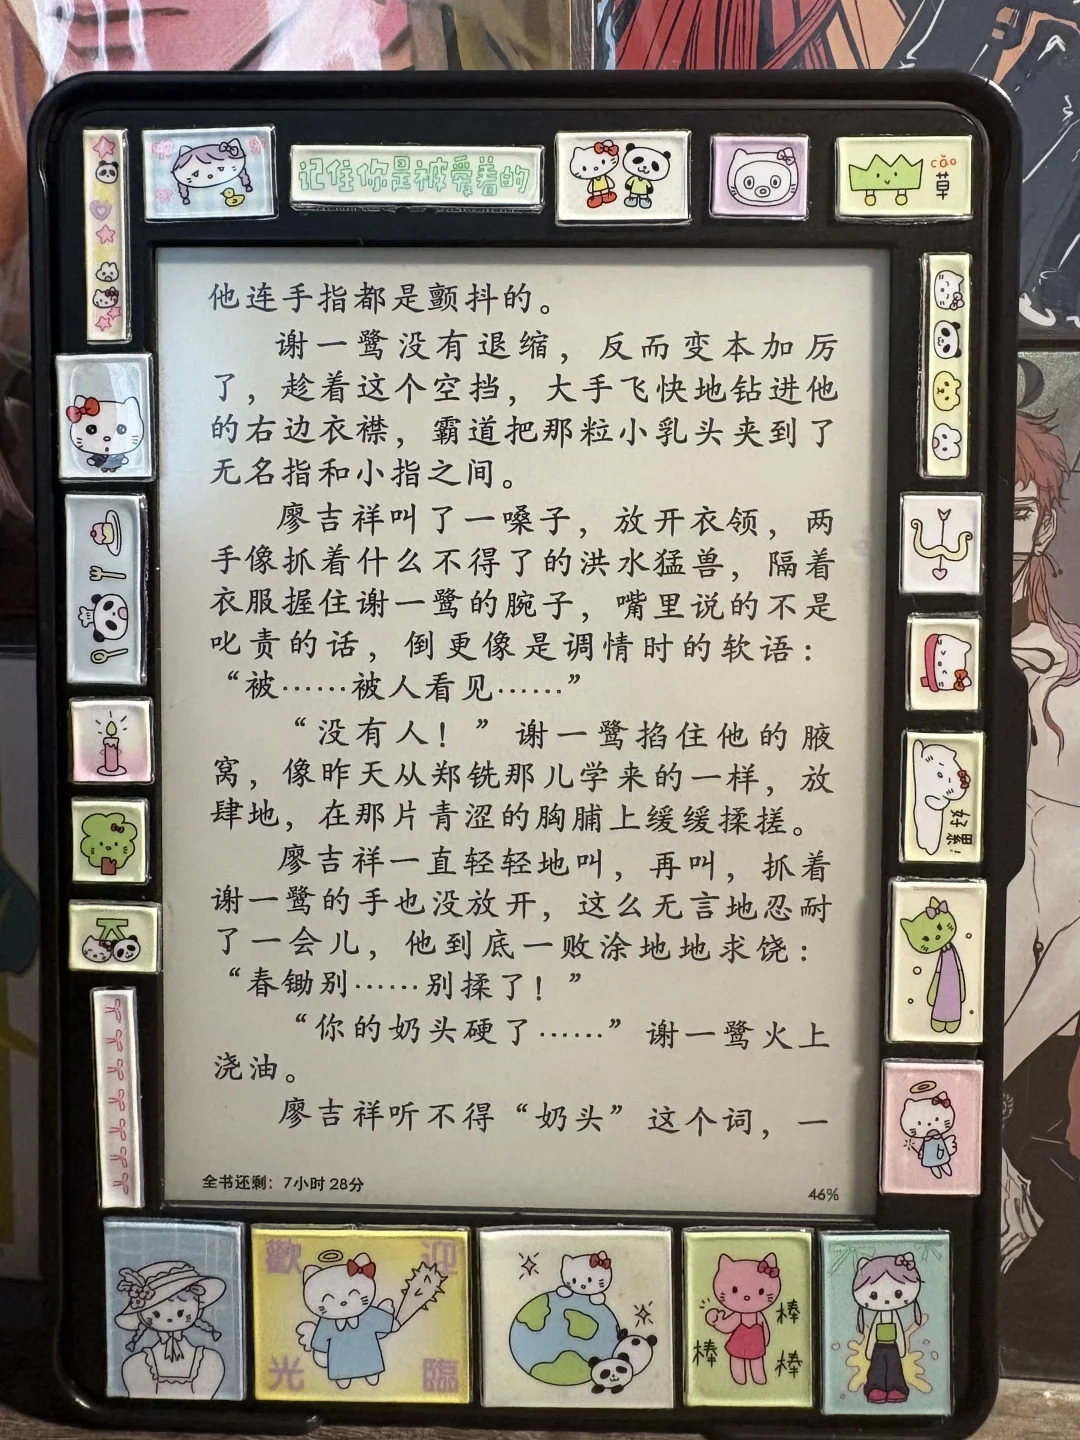 记住你是被爱着的
cǎo
草
他连手指都是颤抖的。
谢一鹭没有退缩，反而变本加厉
了，趁着这个空挡，大手飞快地钻进他
的右边衣襟，霸道把那粒小乳头夹到了
无名指和小指之间。
廖吉祥叫了一嗓子，放开衣领，两
手像抓着什么不得了的洪水猛兽，隔着
衣服握住谢一鹭的腕子，嘴里说的不是
叱责的话，倒更像是调情时的软语：
“被……被人看见……”
“没有人！”谢一鹭掐住他的腋
窝，像昨天从郑铣那儿学来的一样，放
肆地，在那片青涩的胸脯上缓缓揉搓。
廖吉祥一直轻轻地叫，再叫，抓着
谢一鹭的手也没放开，这么无言地忍耐
了一会儿，他到底一败涂地地求饶：
“春锄别……别揉了！”
“你的奶头硬了……”谢一鹭火上
浇油。
廖吉祥听不得“奶头”这个词，一
全书还剩：7小时28分
46%
歡迎
光臨
棒
棒 棒